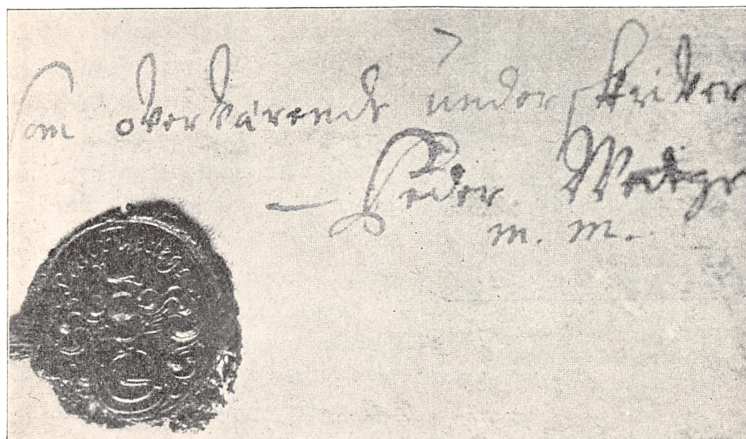 Som overvärende underskriver
Peder Wedege
m. m.